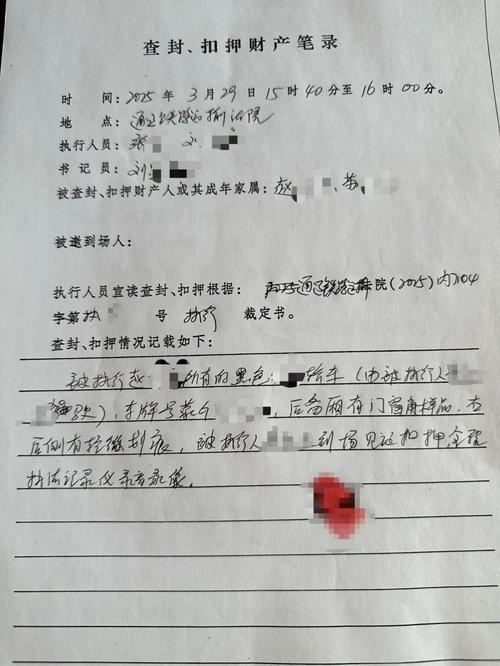 查封、扣押财产笔录
时 间：2025年3月29日15时40分至16时00分。
地 点：通辽铁路运输法院
执行人员：张 刘
书记员：刘
被查封、扣押财产人或其成年家属：赵 、苏
被邀到场人：
执行人员宣读查封、扣押根据： 通辽铁路 院（2025）内7104
字第 执 号 执行 裁定书。
查封、扣押情况记载如下：
被执行 赵 所有的黑色 轿车（由被执行人
驾驶），车牌号蒙G ，后备厢有门窗角样品，右
后侧有轻微划痕，被执行人 到场见证扣押全程
执法记录仪录音录像。